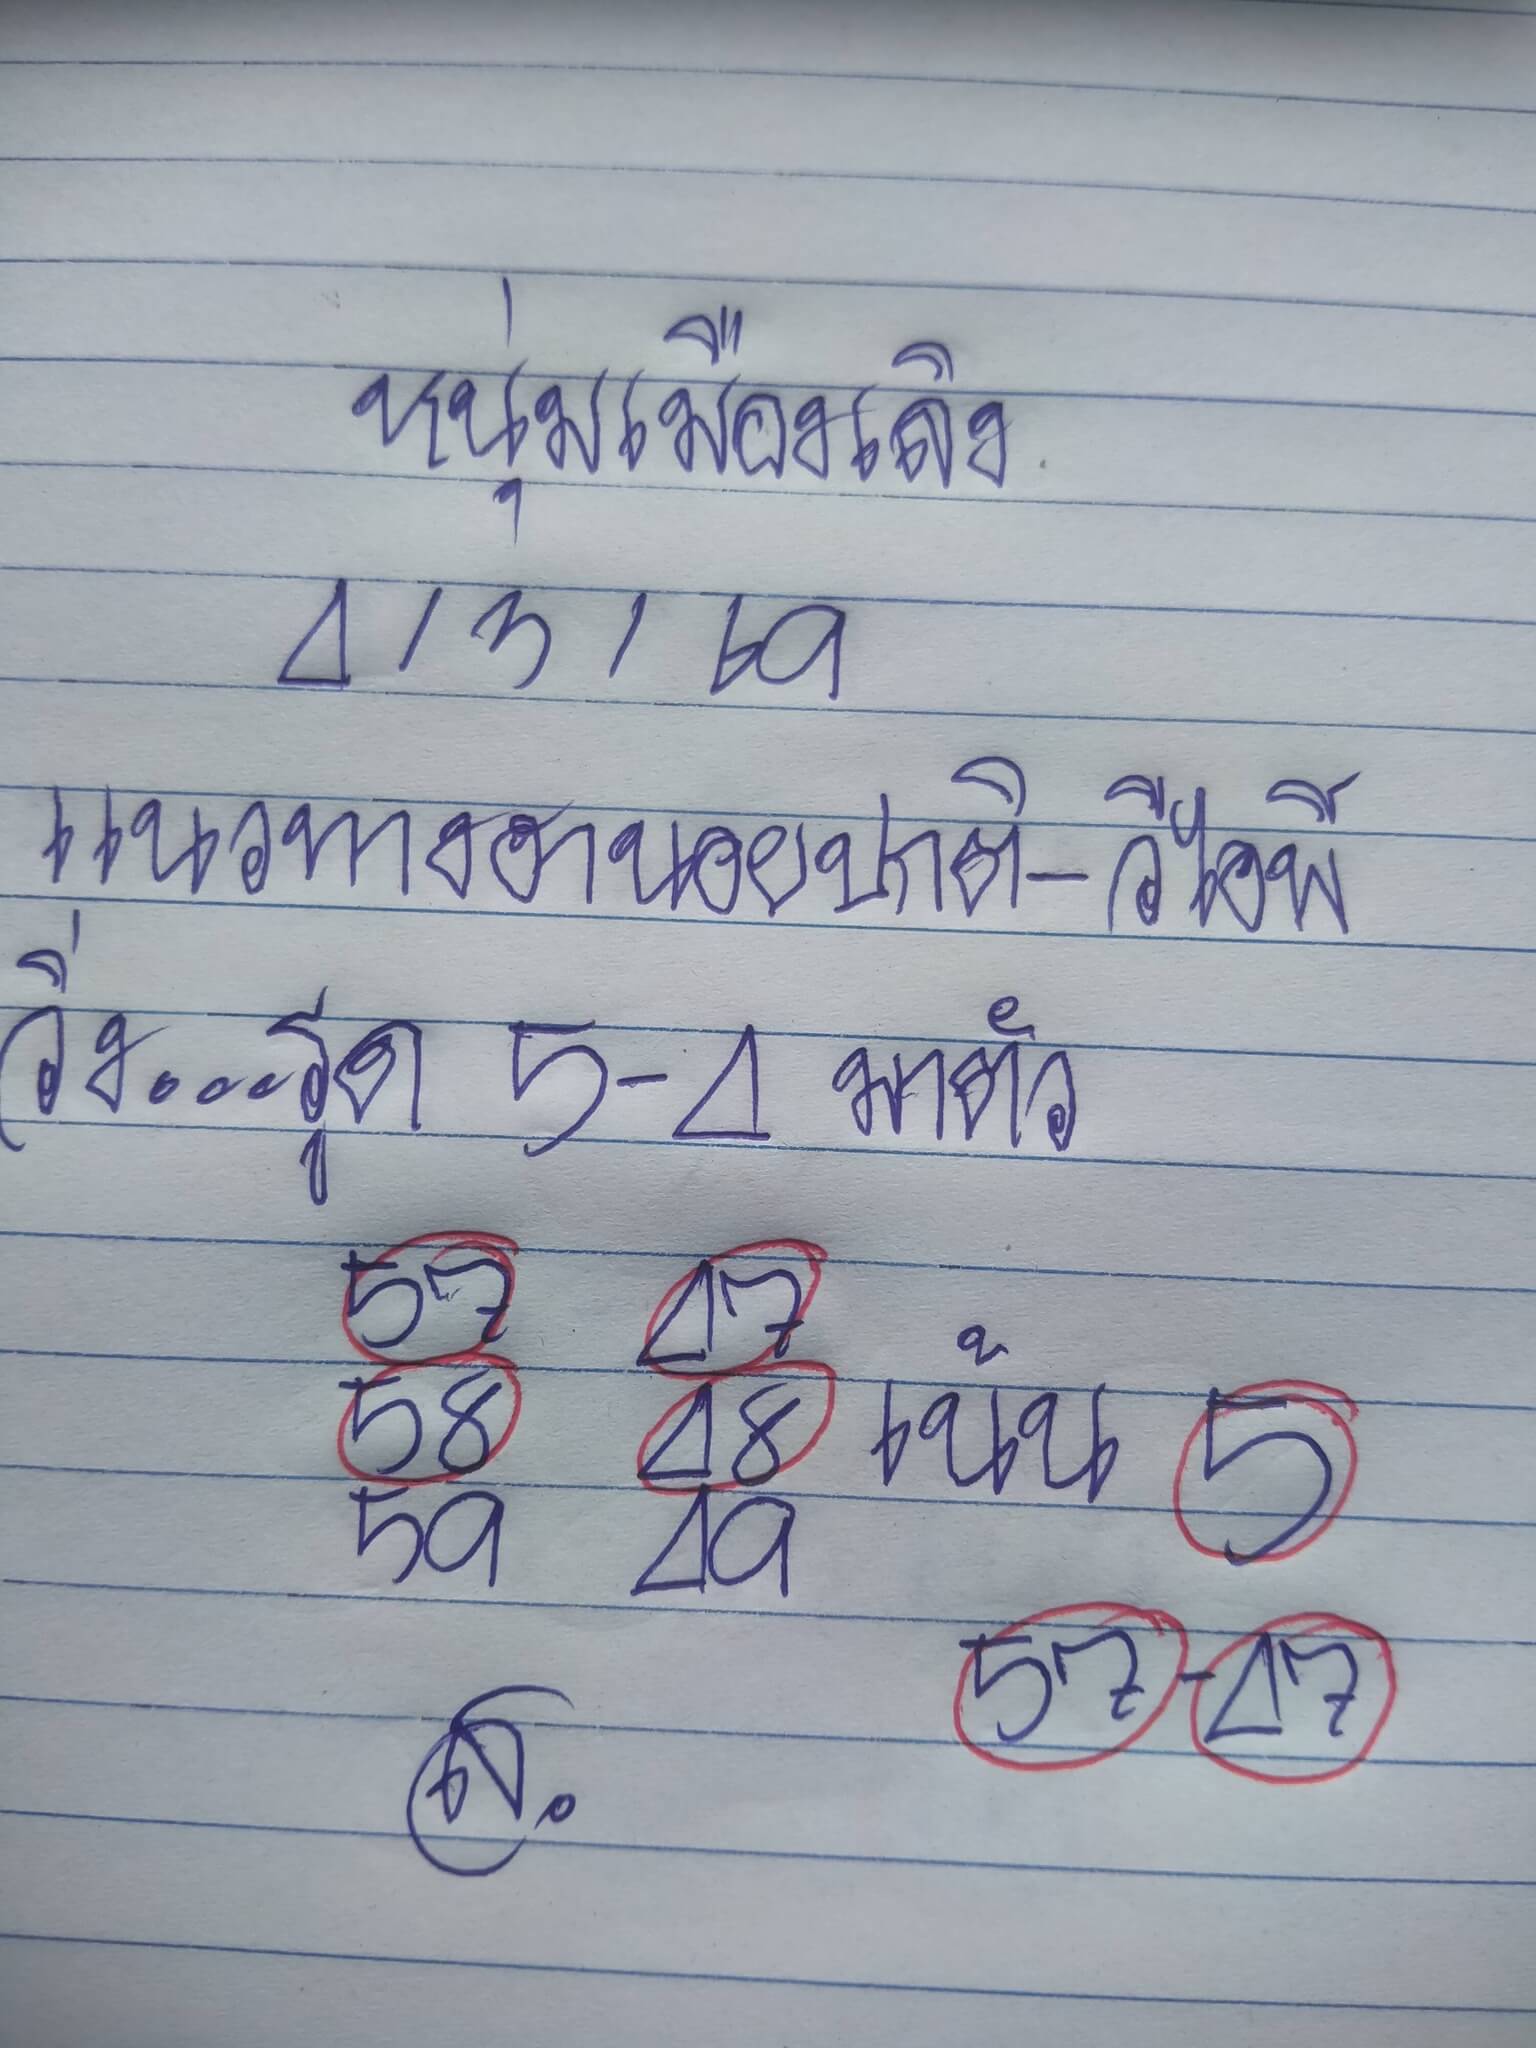 หนุ่มเมืองเลิง
4/3/69
แนวทางฮานอยปกติ-วีไอพี
วิ่ง...รูด 5-4 มาตัว
57 47
58 48 เน้น 5
59 49
57-47